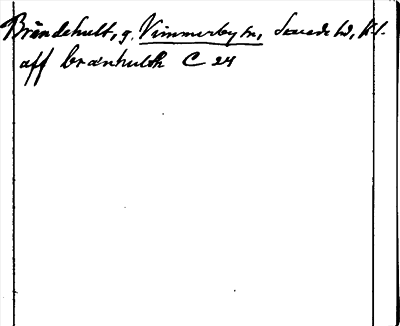 Brändehult, g. Vimmerby sn, Sevede hd, Kl.
aff brænhulth C 24